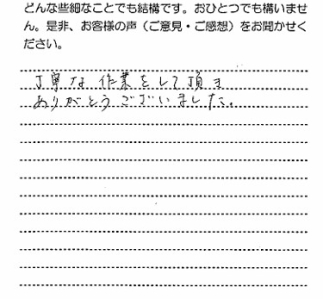 どんな些細なことでも結構です。おひとつでも構いませ
ん。是非、お客様の声（ご意見・ご感想）をお聞かせく
ださい。
丁寧な作業をして頂き
ありがとうございました。